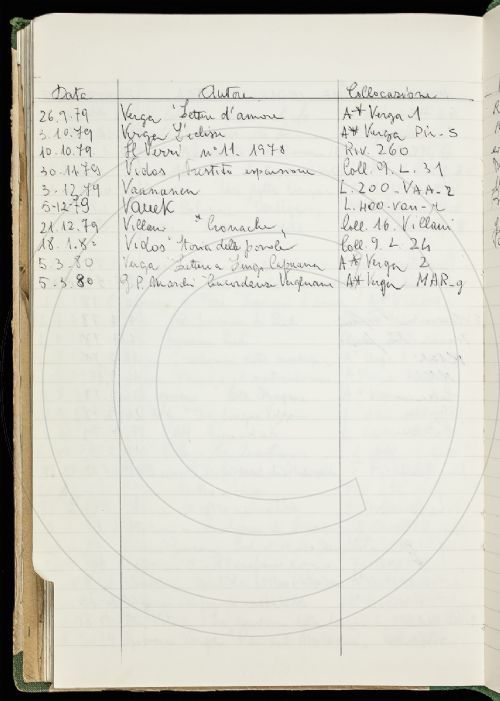 Data Autore Collocazione
26.9.79 Verga "Lettere d'amore A* Verga 1
3.10.79 Verga L'eclisse A* Verga Pir-S
10.10.79 Il Verri n° 11 1978 Riv. 260
30.11.79 Vidos, Prestito espansione Coll. 9. L. 31
3.12.79 Vaananen L.200-VAA-2
5-12-79 L.400-Van-
21.12.79 Villani "Cronache" Coll. 16. Villani
18.1.8 Vidos Storia delle parole Coll. 9. L. 24
5.3.80 Verga Lettere a Luigi Capuana A* Verga 2
5.3.80 G.P. Verghiana A* Verga MAR-g